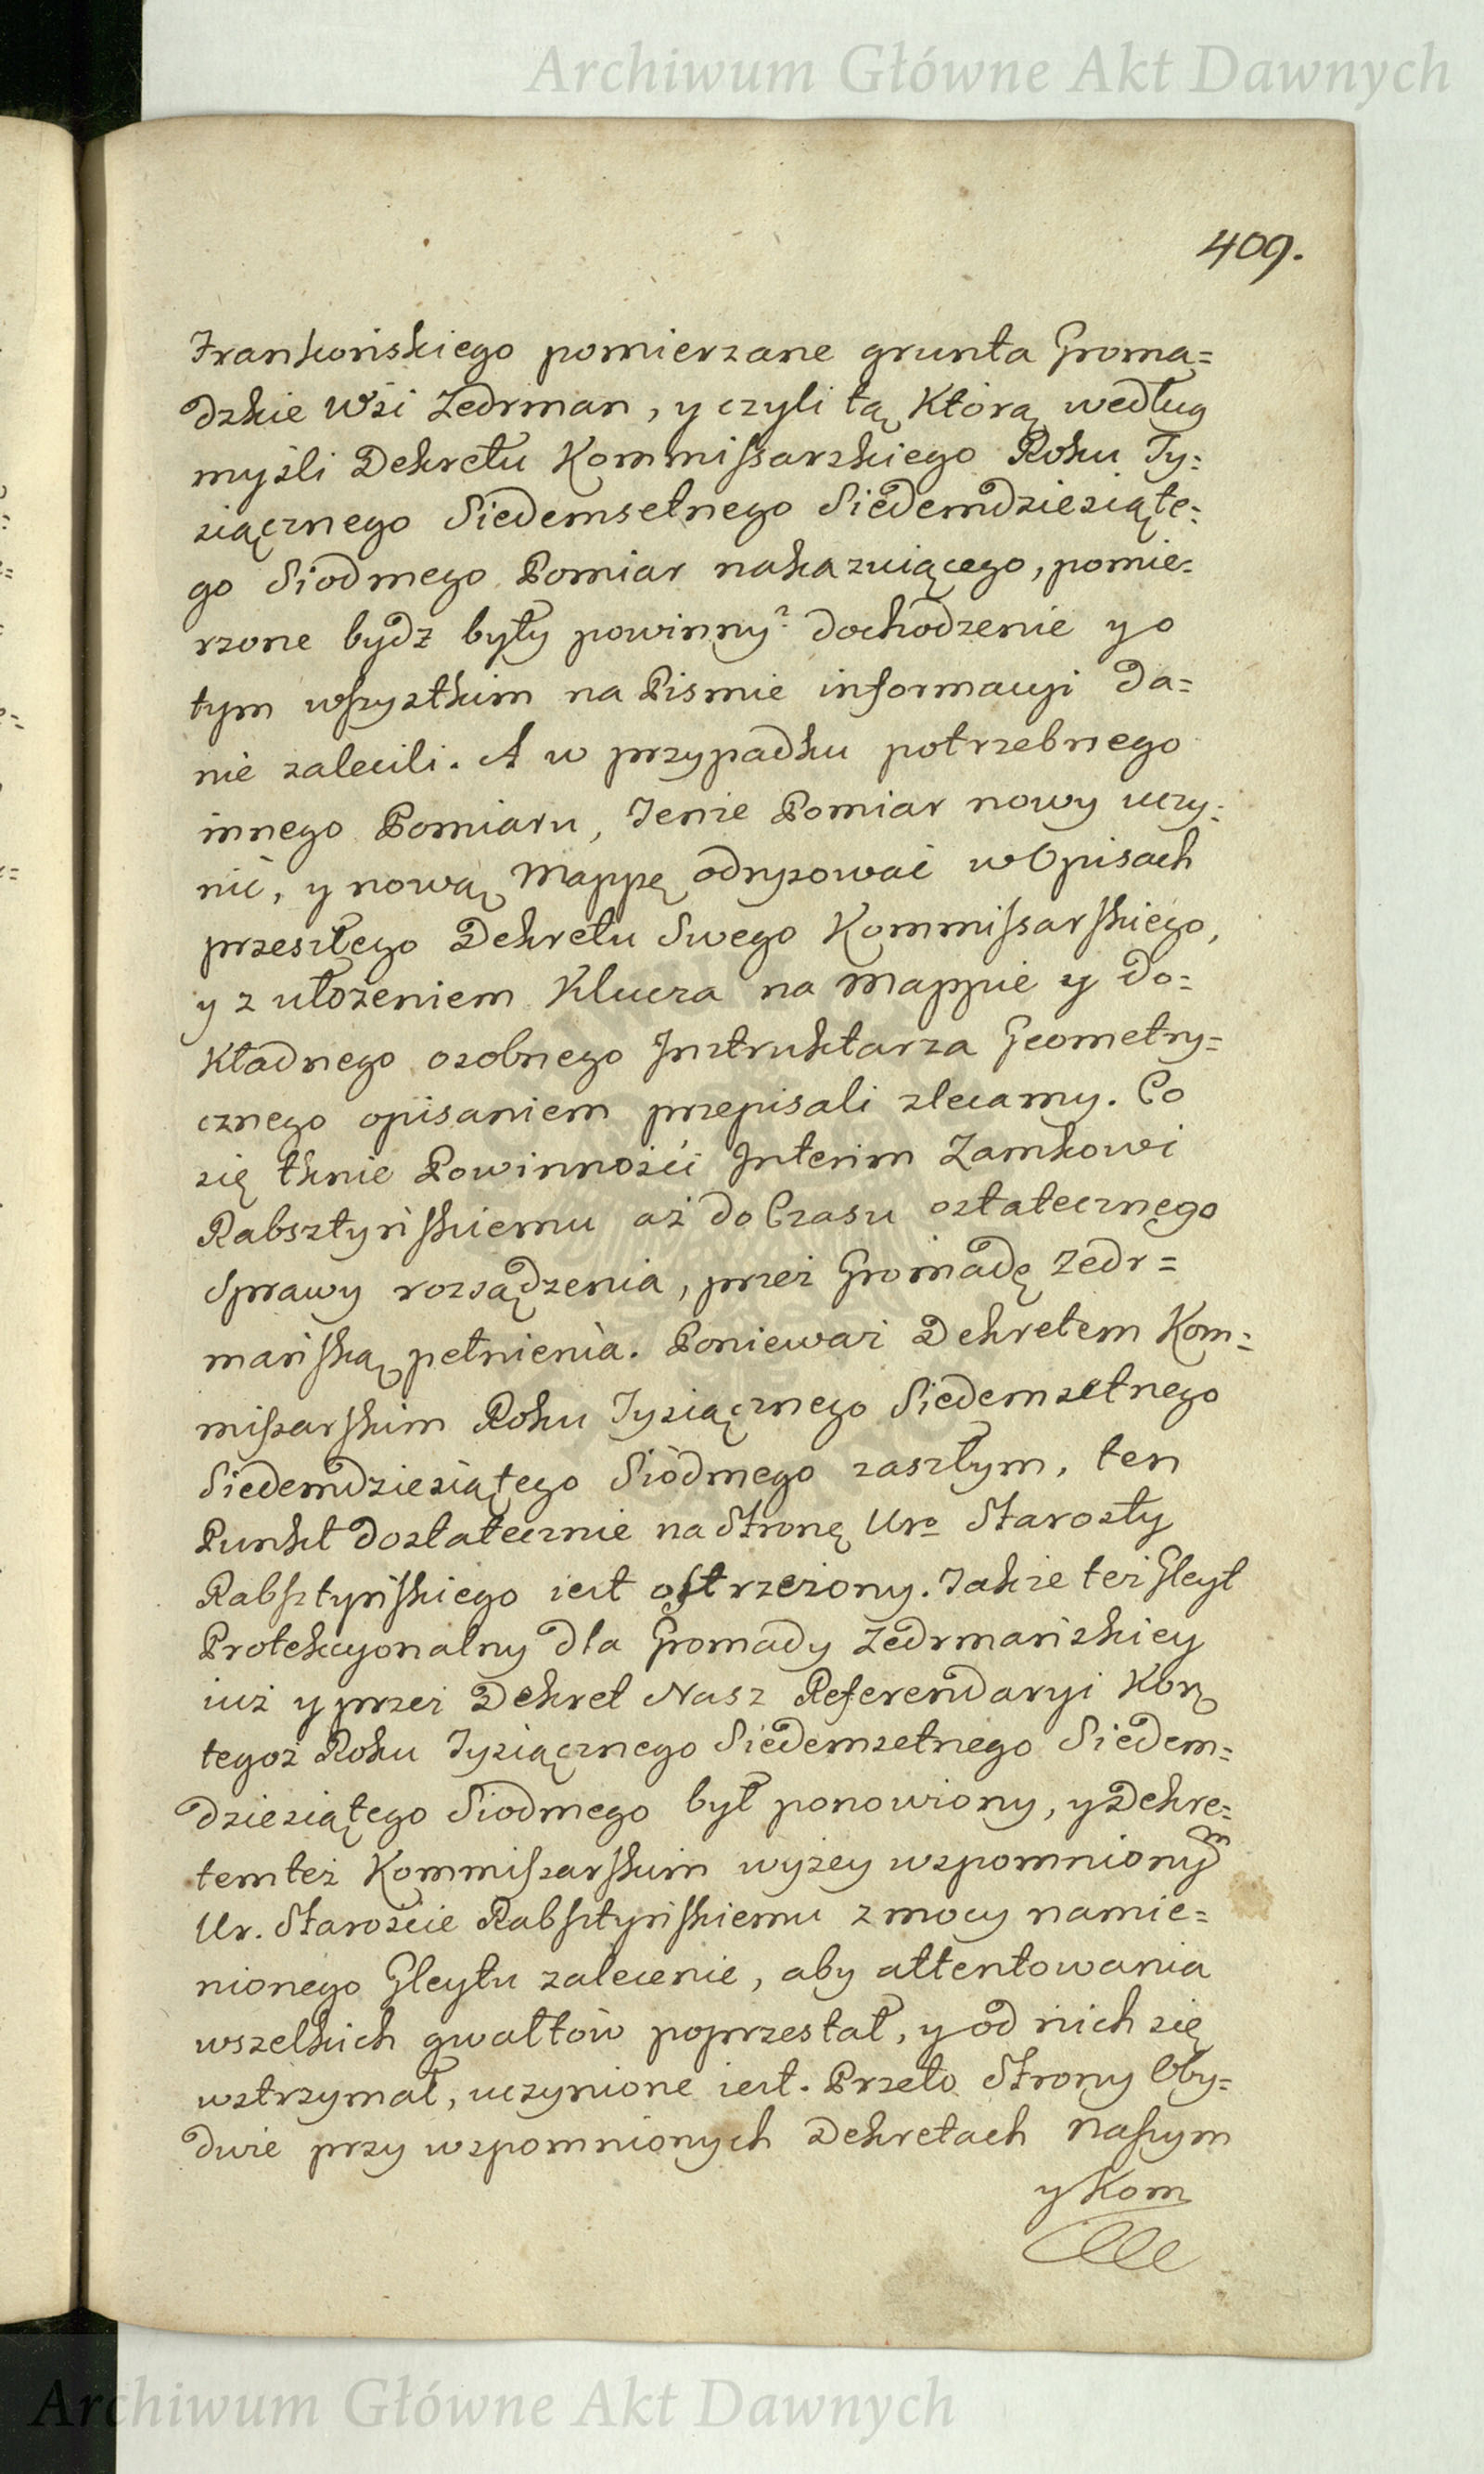 Archiwum Główne Akt Dawnych
409.
Frankońskiego pomierzane grunta Groma=
dzkie Wsi Zedrman, y czyli tą Którą według
myśli Dekretu Kommissarskiego Roku Ty=
siącznego Siedemsetnego Siedemdziesiąte=
go Siodmego Pomiar nakazuiącego, pomie=
rzone bydz były powinny? dochodzenie y o
tym wszystkim na Pismie informacyi da=
nie zalecili. A w przypadku potrzebnego
innego Pomiaru, Jenże Pomiar nowy uczy=
nić, y nową Mappę odrysować w Opisach
przeszłego Dekretu Swego Kommissarskiego,
y z ułożeniem Klucza na Mappie y do=
kładnego osobnego Instruktarza Geometry=
cznego opisaniem przepisali zlecamy. Co
się tknie Powinności Interim Zamkowi
Rabsztyńskiemu aż do Czasu ostatecznego
Sprawy rozsądzenia, przez Gromadę Zedr=
mańską pełnienia. Ponieważ Dekretem Kom=
missarskim Roku Tysiącznego Siedemsetnego
Siedemdziesiątego Siódmego zaszłym, ten
Punkt dostatecznie na Stronę Uro Starosty
Rabsztyńskiego iest ostrzeżony. Jakże też Gleyt
Protekcyonalny dla Gromady Zedrmańskiey
iuż y przez Dekret Nasz Referendaryi Kor
tegoż Roku Tysiącznego Siedemsetnego Siedem=
dziesiątego Siodmego był ponowiony, y Dekre=
tem też Kommissarskim wyżey wspomnionym
Ur. Staroście Rabsztyńskiemu z mocy namie=
nionego Gleytu zalecenie, aby attentowania
wszelkich gwałtów poprzestał, y od nich się
wstrzymał, uczynione iest. Przeto Strony Oby=
dwie przy wspomnionych Dekretach naszym
y Kom
Archiwum Główne Akt Dawnych